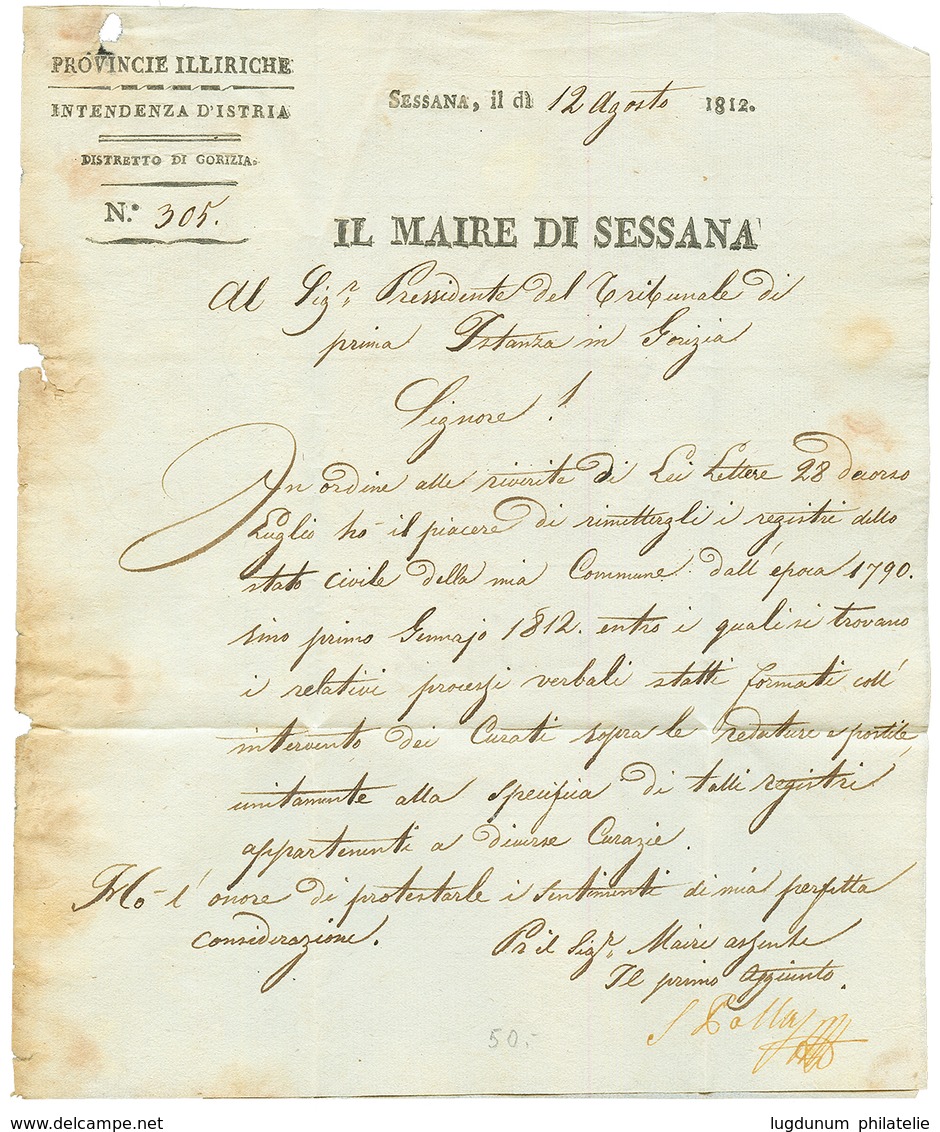 PROVINCIE ILLIRICHE
INTENDENZA D'ISTRIA
DISTRETTO DI GORIZIA.
N.º 305.
SESSANA, il dì 12 Agosto 1812.
IL MAIRE DI SESSANA
Al Sig.r Pressidente del Tribunale di
prima Istanza in Gorizia
Signore !
In ordine alle riverite di Lei Lettere 28 decorso
Luglio ho il piacere di rimettergli i registri dello
stato civile della mia Commune dall' época 1790.
sino primo Gennajo 1812. entro i quali si trovano
i relativi processi verbali statti formati coll'
intervento dei Curati sopra le
unitamente alla specifica di talli registri
appartenenti a diverse Curazie.
Ho l' onore di protestarle i sentimenti di mia perfetta
considerazione.
Pr il Sig.r Maire assente
Il primo Aggiunto.
50.-
delcampe.net
lugdunum philatelie